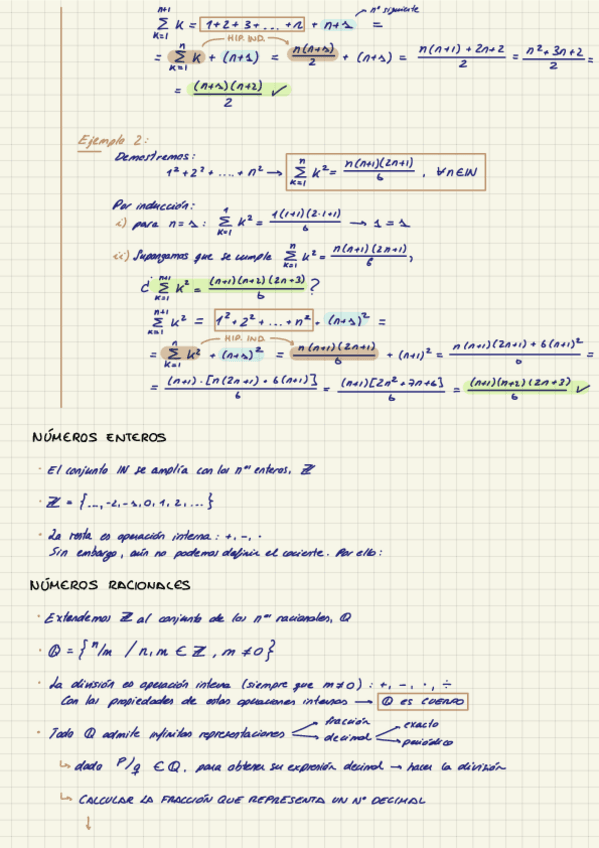 nº siguiente
n+1 ∑ k=1 k = 1+2+3+...+n + n+1 =
HIP. IND.
= n ∑ k=1 k + (n+1) = n(n+1)/2 + (n+1) = n(n+1)+2n+2/2 = n²+3n+2/2 =
= (n+1)(n+2)/2 ✓
Ejemplo 2:
Demostremos:
1²+2²+....+n² → n ∑ k=1 k² = n(n+1)(2n+1)/6 , ∀n∈IN
Por inducción:
i) para n=1: 1 ∑ k=1 k² = 1(1+1)(2·1+1)/6 → 1=1
ii) Supongamos que se cumple n ∑ k=1 k² = n(n+1)(2n+1)/6,
¿ n+1 ∑ k=1 k² = (n+1)(n+2)(2n+3)/6 ?
n+1 ∑ k=1 k² = 1²+2²+...+n² + (n+1)² =
HIP. IND.
= n ∑ k=1 k² + (n+1)² = n(n+1)(2n+1)/6 + (n+1)² = n(n+1)(2n+1)+6(n+1)²/6 =
= (n+1)·[n(2n+1)+6(n+1)]/6 = (n+1)[2n²+7n+6]/6 = (n+1)(n+2)(2n+3)/6 ✓
NÚMEROS ENTEROS
· El conjunto IN se amplía con los nos enteros, ℤ
· ℤ = {...,-2,-1,0,1,2,...}
· La resta es operación interna: +, -, ·
Sin embargo, aún no podemos definir el cociente. Por ello:
NÚMEROS RACIONALES
· Extendemos ℤ al conjunto de los nos racionales, ℚ
· ℚ = {n/m / n,m ∈ ℤ, m ≠ 0}
· La división es operación interna (siempre que m≠0): +, -, ·, ÷
Con las propiedades de estas operaciones internas → ℚ ES CUERPO
· Todo ℚ admite infinitas representaciones
fracción
decimal
exacto
periódico
↳ dado p/q ∈ ℚ, para obtener su expresión decimal → hacer la división
↳ CALCULAR LA FRACCIÓN QUE REPRESENTA UN Nº DECIMAL
↓